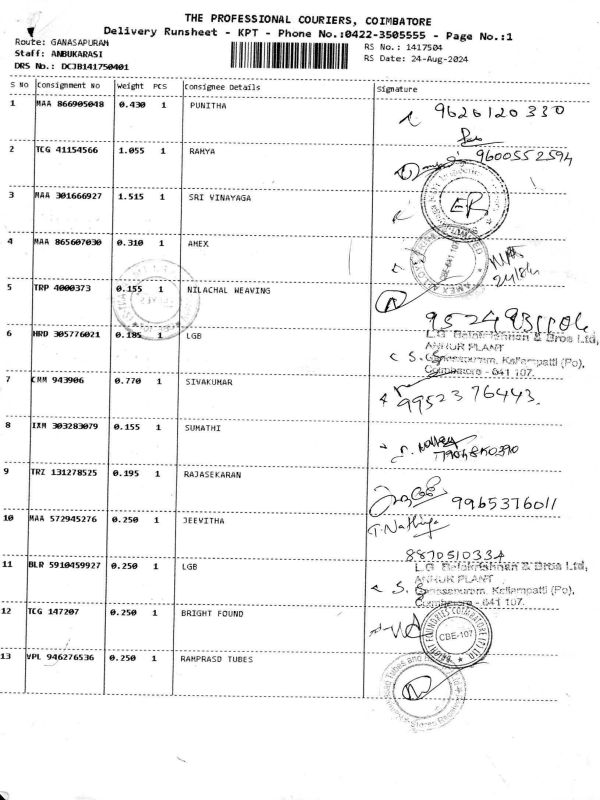 THE PROFESSIONAL COURIERS, COIMBATORE
Delivery Runsheet - KPT - Phone No.:0422-3505555 - Page No.:1
Route: GANASAPURAM
RS No.: 1417504
Staff: ANBUKARASI
RS Date: 24-Aug-2024
DRS No.: DCJB141750401
S No Consignment No Weight PCS Consignee Details Signature
1 MAA 866905048 0.430 1 PUNITHA 9626120330
2 TCG 41154566 1.055 1 RAMYA 9600552594
3 MAA 301666927 1.515 1 SRI VINAYAGA ER
4 MAA 865607030 0.310 1 AMEX
5 TRP 4000373 0.155 1 NILACHAL WEAVING
6 HRD 305776021 0.185 1 LGB
L.G. Balakrishnan & Bros Ltd,
ANNUR PLANT
Ganesapuram, Kallampatti (Po),
Coimbatore - 641 107.
7 CMM 943906 0.770 1 SIVAKUMAR 9952376443
8 IXM 303283079 0.155 1 SUMATHI
9 TRZ 131278525 0.195 1 RAJASEKARAN 9965376011
10 MAA 572945276 0.250 1 JEEVITHA T. Nathiya
8870510334
11 BLR 5910459927 0.250 1 LGB
L.G. Balakrishnan & Bros Ltd,
ANNUR PLANT
Ganesapuram, Kallampatti (Po),
Coimbatore - 641 107.
12 TCG 147207 0.250 1 BRIGHT FOUND
CBE-107
13 VPL 946276536 0.250 1 RAMPRASD TUBES